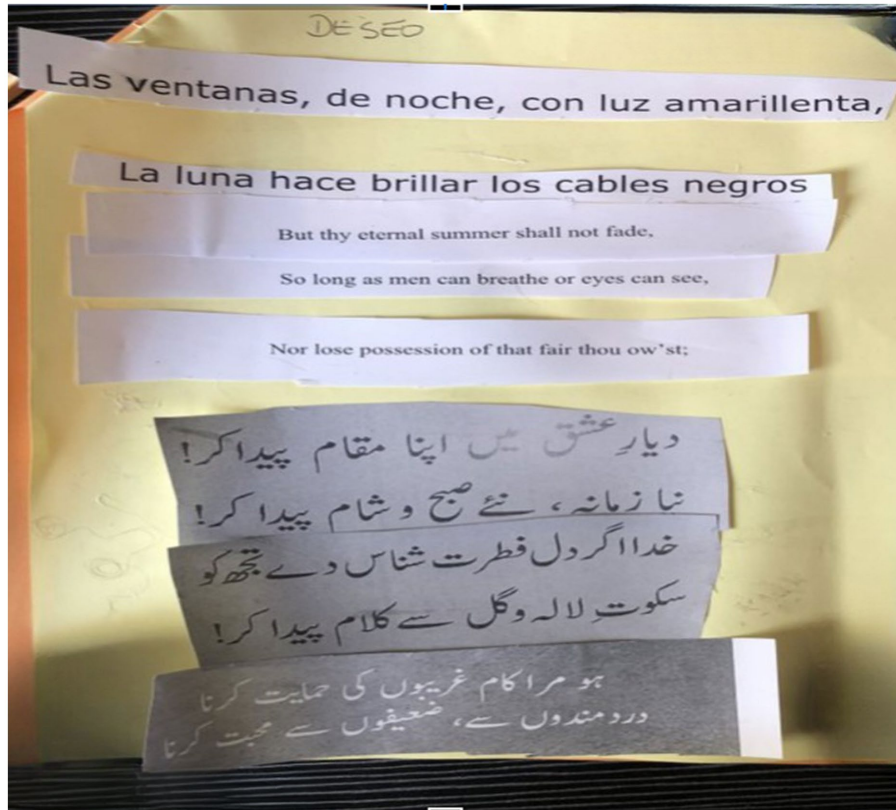 DESEO
Las ventanas, de noche, con luz amarillenta,
La luna hace brillar los cables negros
But thy eternal summer shall not fade,
So long as men can breathe or eyes can see,
Nor lose possession of that fair thou ow'st;
دیارِ عشق میں اپنا مقام پیدا کر!
نیا زمانہ، نئے صبح و شام پیدا کر!
خدا اگر دل فطرت شناس دے تجھ کو
سکوتِ لالہ و گل سے کلام پیدا کر!
ہو مرا کام غریبوں کی حمایت کرنا
دردمندوں سے، ضعیفوں سے محبت کرنا